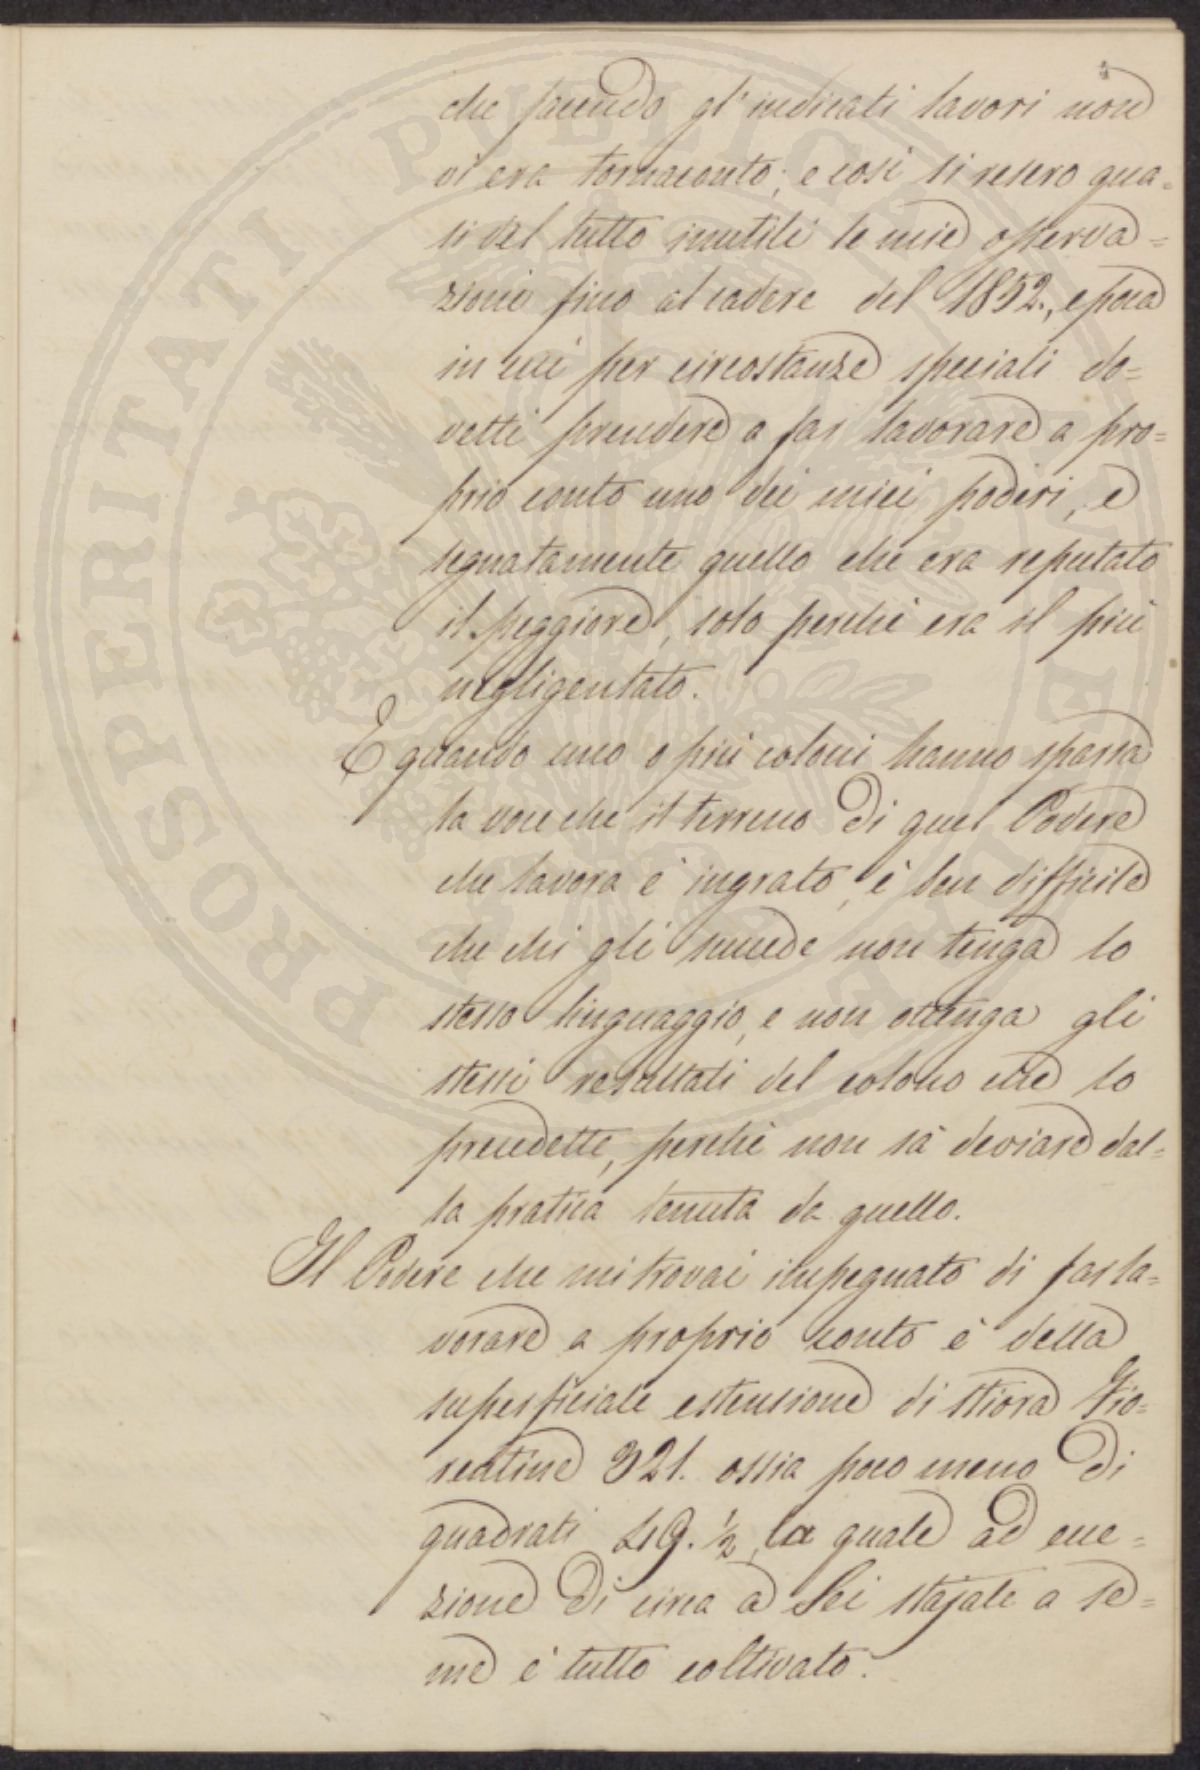 che facendo gl'indicati lavori non
vi era tornaconto; e così si resero qua=
si del tutto inutili le mie osserva=
zioni fino al cadere del 1852., epoca
in cui per circostanze speciali do=
vetti prendere a far lavorare a pro=
prio conto uno dei miei poderi, e
segnatamente quello che era reputato
il peggiore, solo perchè era il più
negligentato.
E quando uno o più coloni hanno sparsa
la voce che il terreno di quel Podere
che lavora è ingrato, è ben difficile
che chi gli succede non tenga lo
stesso linguaggio, e non ottenga gli
stessi resultati del colono che lo
precedette, perchè non sà deviare dal=
la pratica tenuta da quello.
Il Podere che mi trovai impegnato di far la=
vorare a proprio conto è della
superficiale estensione di stiora Fio=
rentine 321. ossia poco meno di
quadrati 49. ½, la quale ad ecce=
zione di circa a Sei stajate a se=
me è tutto coltivato.
PROSPERITATI PUBLICAE AUGENDAE